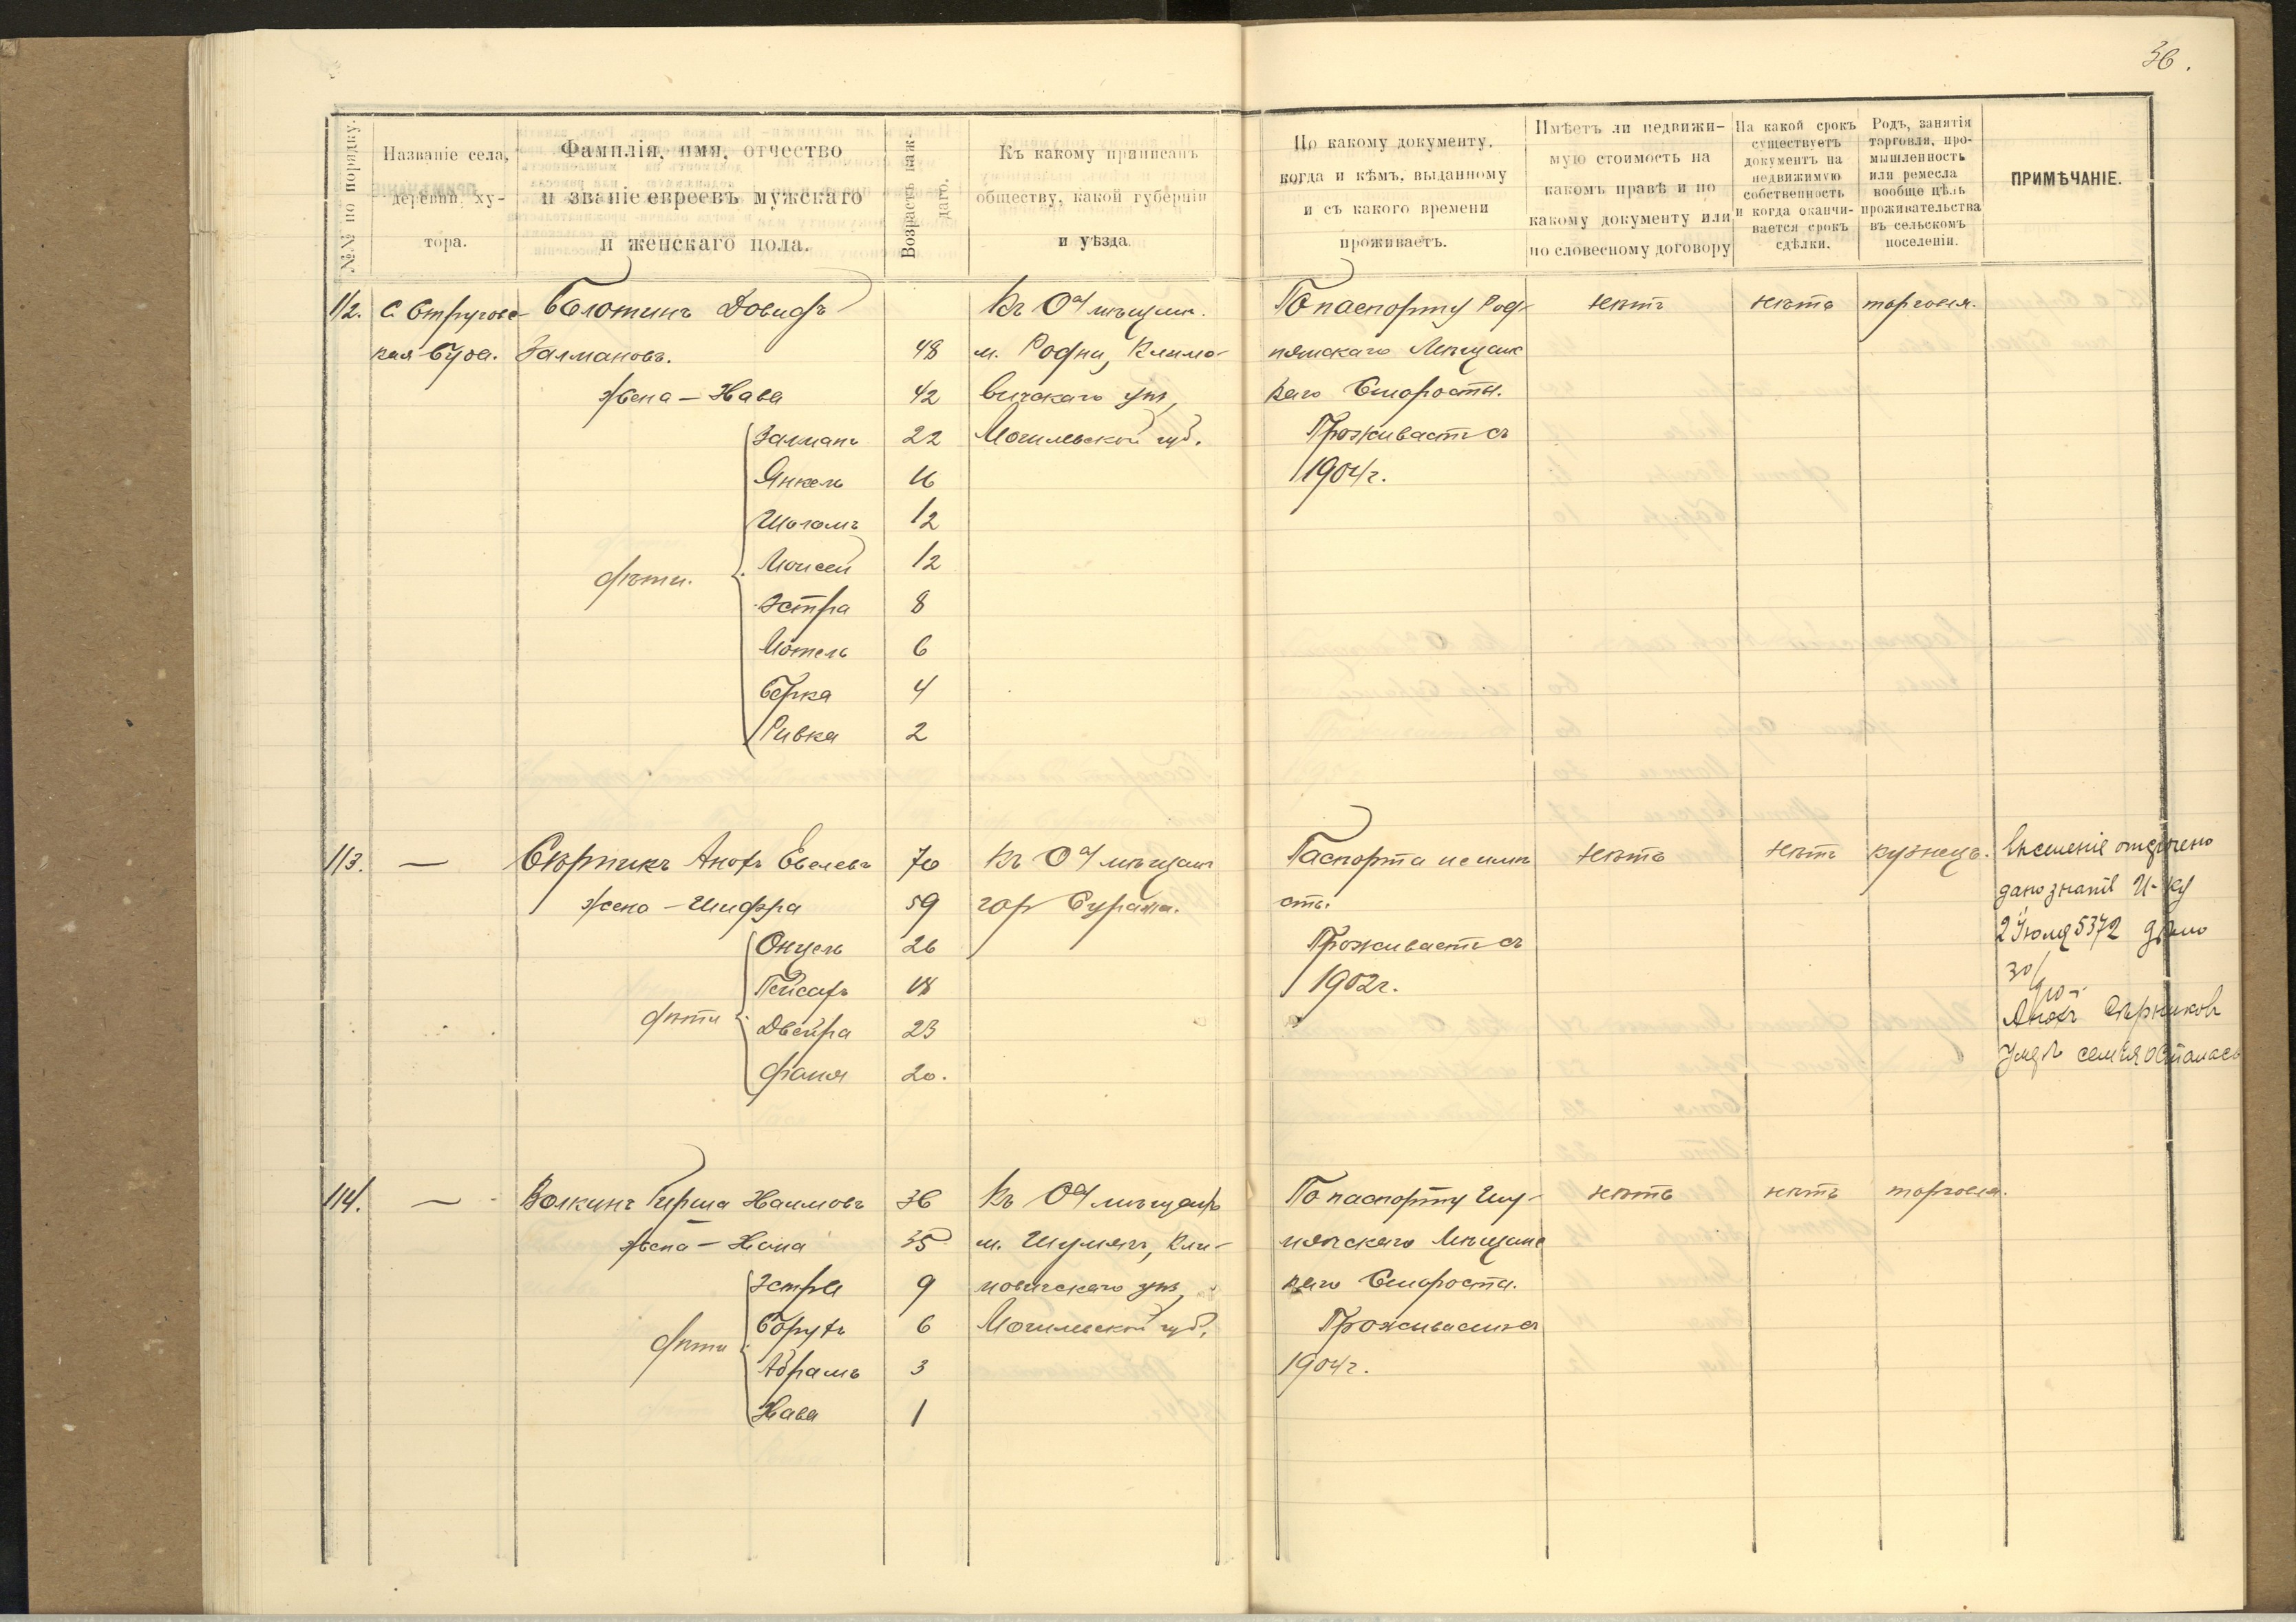 36.
№№ по порядку.
Названіе села, деревни, хутора.
Фамилія, имя, отчество
и званіе евреевъ мужскаго
и женскаго пола.
Возрастъ каждаго.
Къ какому приписанъ
обществу, какой губерніи
и уѣзда
По какому документу,
когда и кѣмъ, выданному
и съ какого времени
проживаетъ.
Имѣетъ ли недвижи-
мую стоимость на
какомъ правѣ и по
какому документу или
по словесному договору
На какой срокъ
существуетъ
документъ на
недвижимую
собственность
и когда оканчи-
вается срокъ
сдѣлки.
Родъ, занятія
торговли, про-
мышленность
или ремесла
вообще цѣль
проживательства
въ сельскомъ
поселеніи.
ПРИМѢЧАНІЕ.
112. С. Стругов- Болотинъ Довидъ Къ О-у мѣщан. По паспорту Род- нѣтъ нѣтъ торговля.
ская Буда. Залмановъ. 48 м. Родни, Климо- нянскаго Мѣщанс
жена — Хава 42 вичскаго уѣз, каго Старосты.
Залманъ 22 Могилевской губ. Проживаетъ съ
Янкель 16 1904 г.
Шоломъ 12
дѣти. Моисей 12
Эстра 8
Мотель 6
Берка 4
Ривка 2
113. — Сѣрникъ Анохъ Евелевъ 70 Къ О-у мѣщанъ Паспорта не имѣ нѣтъ нѣтъ кузнецъ. Выселеніе отсрочено
жена — Шифра 59 гор Суража. етъ. дано знать И-ку
Онцель 26 Проживаетъ съ 2 Іюля 5372 дѣло
Пейсахъ 18 1902 г. 30/910
дѣти Двейра 23 Анохъ Сѣрниковъ
Фаня 20. умеръ семья осталась
114. — Волкинъ Гирша Хаимовъ 36 Къ О-у мѣщанъ По паспорту Шу- нѣтъ нѣтъ торговля.
жена — Хана 35 м. Шумячъ, Кли- мячскаго Мѣщанс
Эстра 9 мовичскаго уѣз, каго Старосты.
дѣти Борухъ 6 Могилевской губ. Проживаетъ съ
Абрамъ 3 1904 г.
Хава 1